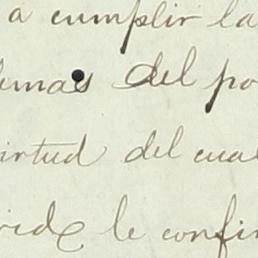 a cumplir la
emas del po
irtud del cual
le confir